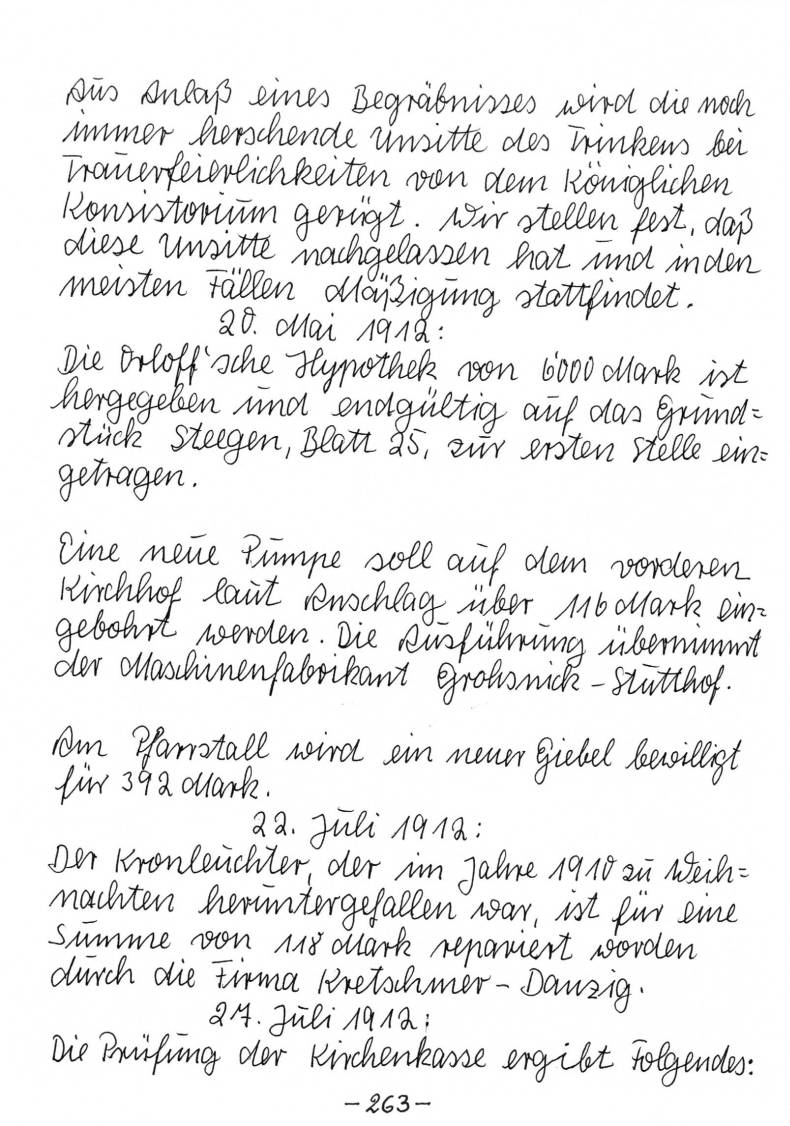 Aus Anlaß eines Begräbnisses wird die noch
immer herschende Unsitte des Trinkens bei
Trauerfeierlichkeiten von dem Königlichen
Konsistorium gerügt. Wir stellen fest, daß
diese Unsitte nachgelassen hat und in den
meisten Fällen Mäßigung stattfindet.
20. Mai 1912:
Die Orloff'sche Hypothek von 6000 Mark ist
hergegeben und endgültig auf das Grund=
stück Steegen, Blatt 25, zur ersten Stelle ein=
getragen.
Eine neue Pumpe soll auf dem vorderen
Kirchhof laut Anschlag über 116 Mark ein=
gebohrt werden. Die Ausführung übernimmt
der Maschinenfabrikant Grohsnick – Stutthof.
Am Pfarrstall wird ein neuer Giebel bewilligt
für 392 Mark.
22. Juli 1912:
Der Kronleuchter, der im Jahre 1910 zu Weih=
nachten heruntergefallen war, ist für eine
Summe von 118 Mark repariert worden
durch die Firma Kretschmer – Danzig.
27. Juli 1912:
Die Prüfung der Kirchenkasse ergibt Folgendes:
– 263 –